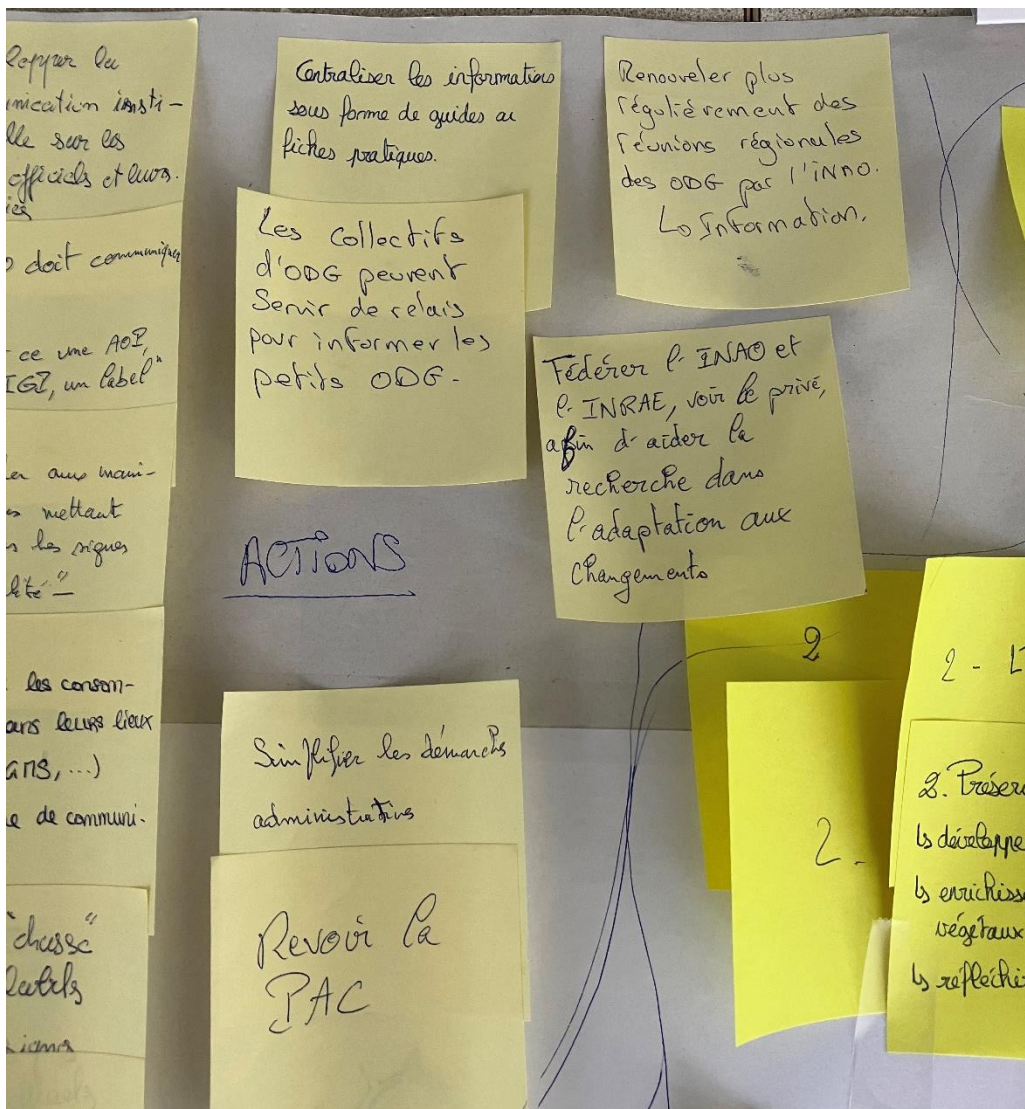 lopper la
unication insti-
lle sur les
officiels et leurs
doit communiquer
ce une AOP,
IGP, un label"
er aux mani-
mettant
les signes
lité"
les consom-
ans leurs lieux
ans, ...)
e de communi-
"chasse"
labels
signes
Centraliser les informations
sous forme de guides ou
fiches pratiques.
Les collectifs
d'ODG peuvent
Servir de relais
pour informer les
petits ODG.
Renouveler plus
régulièrement des
réunions régionales
des ODG par l'INAO.
↳ Information.
Fédérer l'INAO et
l'INRAE, voir le privé,
afin d'aider la
recherche dans
l'adaptation aux
changements
ACTIONS
Simplifier les démarches
administratives
Revoir la
PAC
2
2.
2 -
2. Préser
↳ développe
↳ enrichisse
végétaux
↳ réfléchi